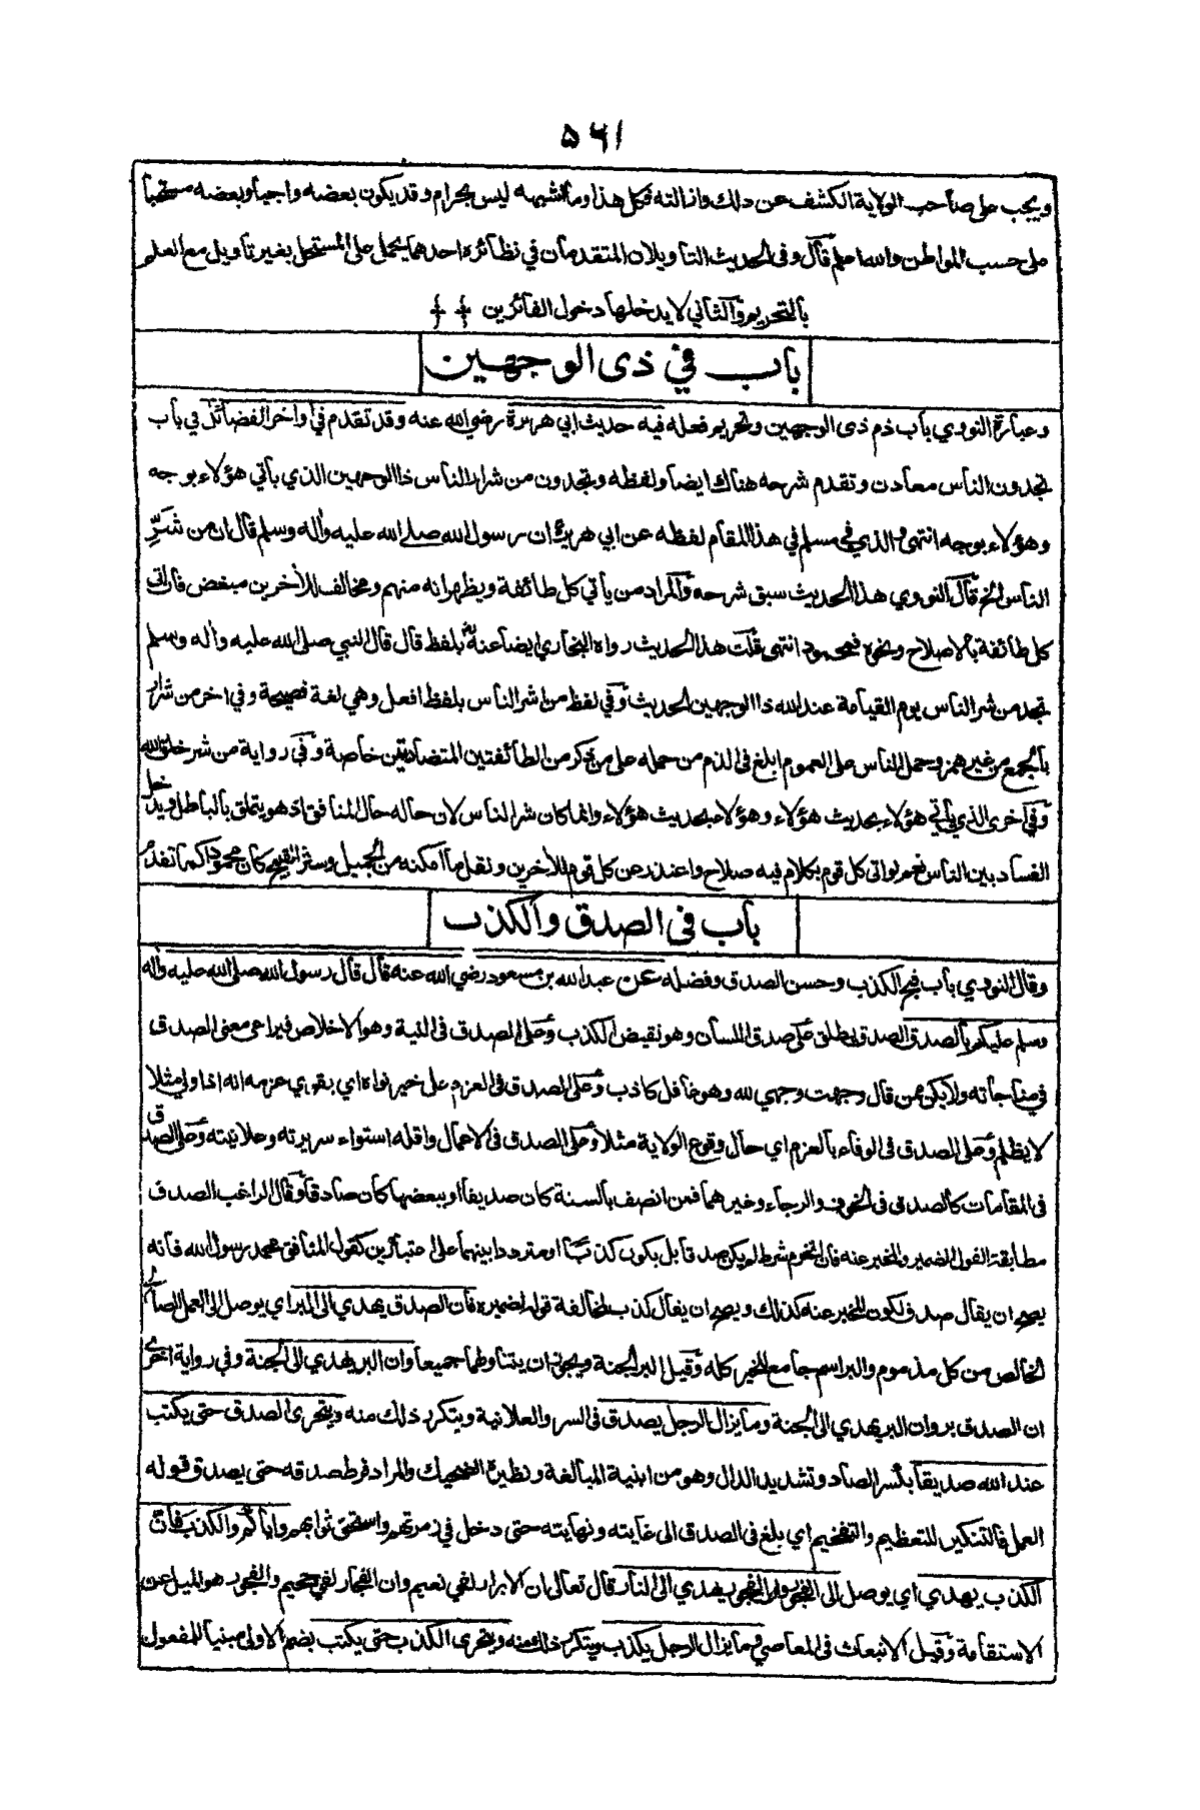 ٥٦١
ويجب على صاحب الولاية الكشف عن ذلك وازالته فكل هذا وما اشبهه ليس بحرام وقد يكون بعضه واجبا وبعضه مستحبا
على حسب المواطن والله اعلم قال وفى الحديث التاويلان المتقدمان في نظائره احدهما يحمل على المستحل بغير تاويل مع العلم
بالتحريم والثاني لا يدخلها دخول الفائزين
باب في ذى الوجهين
وعبارة النووي باب ذم ذى الوجهين وتحريم فعله فيه حديث ابي هريرة رضي الله عنه وقد تقدم في أواخر الفضائل في باب
تجدون الناس معادن وتقدم شرحه هناك ايضا ولفظه وتجدون من شرار الناس ذا الوجهين الذي يأتي هؤلاء بوجه
وهؤلاء بوجه انتهى والذي في مسلم في هذا المقام لفظه عن ابي هريرة ان رسول الله صلى الله عليه واله وسلم قال ان من شَرِّ
الناس الخ قال النووي هذا الحديث سبق شرحه والمراد من يأتي كل طائفة ويظهر انه منهم ومخالف للأخرين مبغض فان اتى
كل طائفة بالاصلاح ونحوه فمحمود انتهى قلت هذا الحديث رواه البخاري ايضا عنه بلفظ قال قال النبي صلى الله عليه واله وسلم
تجد من شر الناس يوم القيامة عند الله ذا الوجهين الحديث وفي لفظ من اشر الناس بلفظ افعل وهي لغة فصيحة وفي اخر من شرار
بالجمع من غير همز وحمل الناس على العموم ابلغ فى الذم من حمله على من ذكر من الطائفتين المتضادتين خاصة وفى رواية من شر خلق الله
وفى أخرى الذي يأتي هؤلاء بحديث هؤلاء وهؤلاء بحديث هؤلاء وانما كان شر الناس لان حاله حال المنافق اذ هو يتملق بالباطل ويدخل
الفساد بين الناس نعم لو اتى كل قوم بكلام فيه صلاح واعتذر عن كل قوم للأخرين ونقل ما أمكنه من الجميل وستر القبيح كان محمودا كما تقدم
باب فى الصدق والكذب
وقال النووي باب قبح الكذب وحسن الصدق وفضله عن عبد الله بن مسعود رضي الله عنه قال قال رسول الله صلى الله عليه واله
وسلم عليكم بالصدق الصدق يطلق على صدق اللسان وهو نقيض الكذب وعلى الصدق فى النية وهو الاخلاص فيراعى معنى الصدق
في مناجاته ولا يكن ممن قال وجهت وجهي لله وهو غافل كاذب وعلى الصدق فى العزم على خير نواه اي يقوي عزمه انه اذا ولي مثلا
لا يظلم وعلى الصدق فى الوفاء بالعزم اي حال وقوع الولاية مثلا وعلى الصدق فى الاعمال واقله استواء سريرته وعلانيته وعلى الصدق
فى المقامات كالصدق فى الخوف والرجاء وغيرهما فمن اتصف بالستة كان صديقا او ببعضها كان صادقا وقال الراغب الصدق
مطابقة القول الضمير والمخبر عنه فان انخرم شرط لم يكن صدقا بل يكون كذبا او مترددا بينهما على اعتبارين كقول المنافق محمد رسول الله فانه
يصح ان يقال صدق لكون المخبر عنه كذلك ويصح ان يقال كذب لمخالفة قوله لضميره فان الصدق يهدي الى البر اي يوصل الى العمل الصالح
الخالص من كل مذموم والبر اسم جامع للخير كله وقيل البر الجنة ويجوز ان يتناولهما جميعا وان البر يهدي الى الجنة وفي رواية اخرى
ان الصدق بر وان البر يهدي الى الجنة وما يزال الرجل يصدق فى السر والعلانية ويتكرر ذلك منه ويتحرى الصدق حتى يكتب
عند الله صديقا بكسر الصاد وتشديد الدال وهو من ابنية المبالغة ونظيره الضحيك والمراد فرط صدقه حتى يصدق قوله
العمل فالتنكير للتعظيم والتفخيم اي بلغ فى الصدق الى غايته ونهايته حتى دخل في زمرتهم واستحق ثوابهم واياكم والكذب فان
الكذب يهدي اي يوصل الى الفجور وان الفجور يهدي الى النار قال تعالى ان الابرار لفي نعيم وان الفجار لفي جحيم والفجور هو الميل عن
الاستقامة وقيل الانبعاث فى المعاصي وما يزال الرجل يكذب ويتكرر ذلك منه ويتحرى الكذب حتى يكتب بضم الاولى مبنيا للمفعول